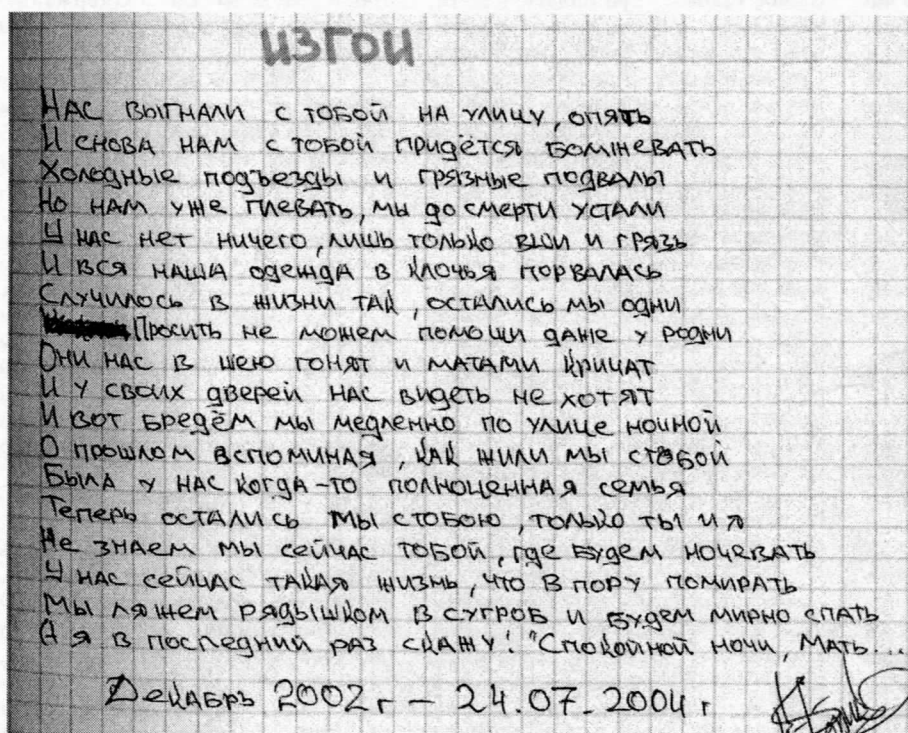 ИЗГОИ
Нас выгнали с тобой на улицу, опять
И снова нам с тобой придётся бомжевать
Холодные подъезды и грязные подвалы
Но нам уже плевать, мы до смерти устали
У нас нет ничего, лишь только вши и грязь
И вся наша одежда в клочья порвалась
Случилось в жизни так, остались мы одни
Просить не можем помощи даже у родни
Они нас в шею гонят и матами кричат
И у своих дверей нас видеть не хотят
И вот бредём мы медленно по улице ночной
О прошлом вспоминая, как жили мы стобой
Была у нас когда-то полноценная семья
Теперь остались мы стобою, только ты и я
Не знаем мы сейчас тобой, где будем ночевать
У нас сейчас такая жизнь, что в пору помирать
Мы ляжем рядышком в сугроб и будем мирно спать
А я в последний раз скажу! "Спокойной ночи, Мать...
Декабрь 2002г – 24.07.2004г